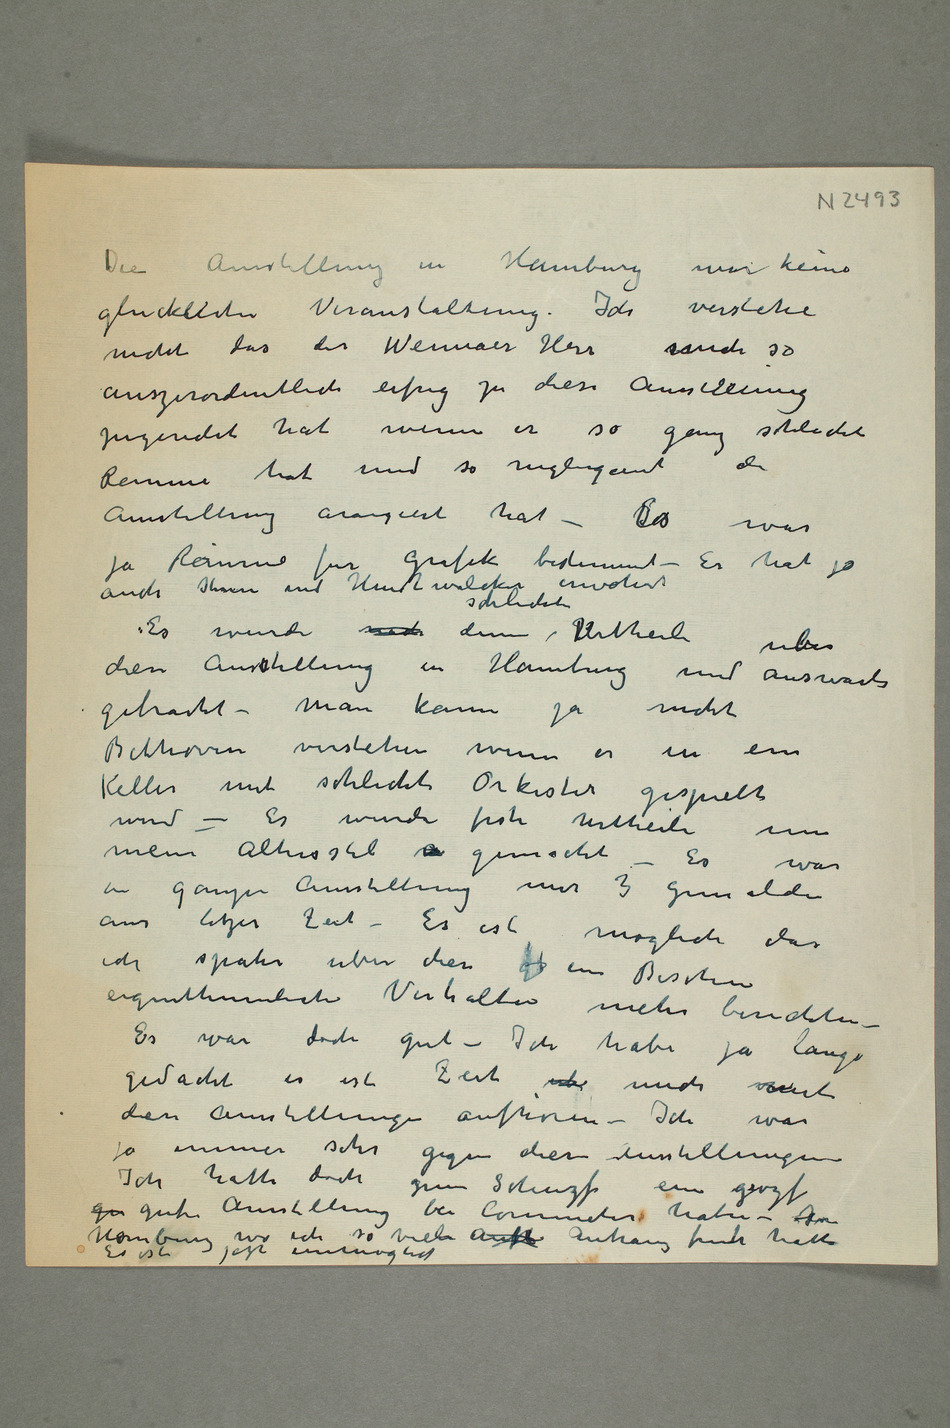 N 2493
Die Ausstellung in Hamburg war keine
glucklichen Veranstaltung. Ich verstehe
nicht das der Herr mich so
auszerordentlich eifrig zu diese Ausstellung
hat wenn er so ganz schlecht
Raume hat und so negligent die
Ausstellung arangiert hat – Es war
ja Raume fur Grafik bestimmt – Er hat ja
auch und
schlechte
Es wurde denn Urtheile uber
diese Ausstellung in Hamburg und auswarts
gebracht – Man kann ja nicht
Bethoven verstehen wenn er in ein
Keller mit schlecht Orkester gespielt
wird – Es wurde Urtheile um
mein Altersstil gemacht – Es war
in ganzen Ausstellung nur 3 Gemalde
aus letzer Zeit – Es ist moglich das
ich spater uber diese ein Bischen
eigenthumliche Verhalten mehr berichten –
Es war doch gut – Ich habe ja lange
gedacht es ist Zeit mich mit
diese Ausstellunge aufhoren – Ich war
ja immer sehr gegen diese Ausstellungen
Ich hatte doch zum ein
gute Ausstellung bei Commeter haben –
Hamburg wo ich so viele Anhang hatte
Es ist jetzt unmoglich